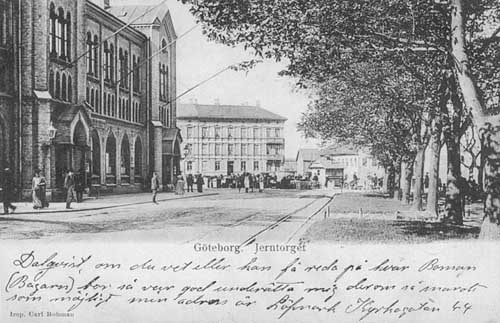 Göteborg. Jerntorget
Dalqvist om du vet eller kan få reda på hvar Boman
(Bagaren) bor så var god underrätta mig derom så snart
som möjligt min adress är Löfmark Kyrkogatan 44
Imp. Carl Bohman